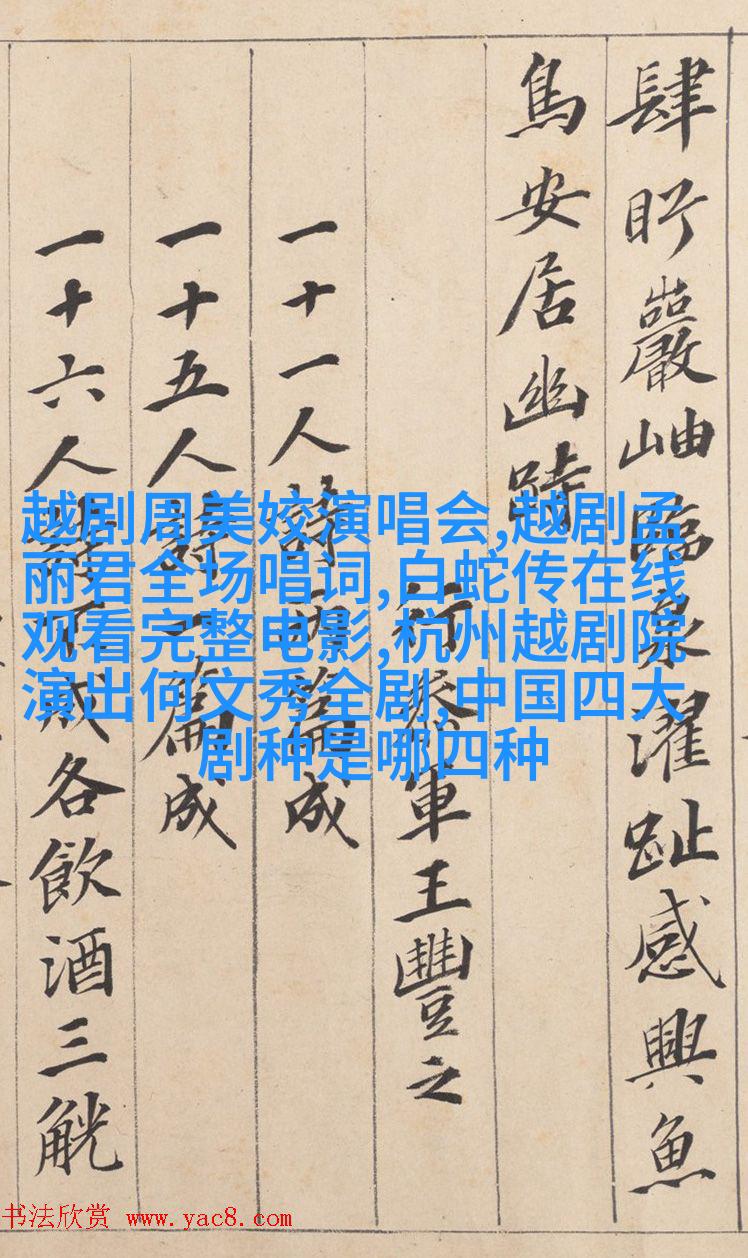 肆盱巖岫臨泉濯趾感興魚
鳥安居幽跱
行參軍王豐之
一十一人詩兩篇成
一十五人詩一篇成
一十六人詩不成各飲酒三觥
越剧周美姣演唱会,越剧孟
丽君全场唱词,白蛇传在线
观看完整电影,杭州越剧院
演出何文秀全剧,中国四大
剧种是哪四种
书法欣赏 www.yac8.com